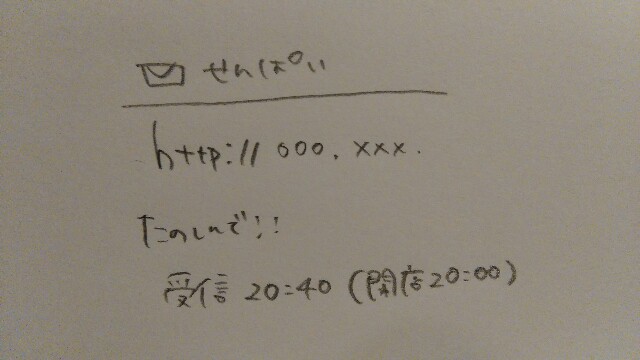 せんぱい
http:// 000. xxx.
たのしんで!!
受信 20:40 (閉店20:00)